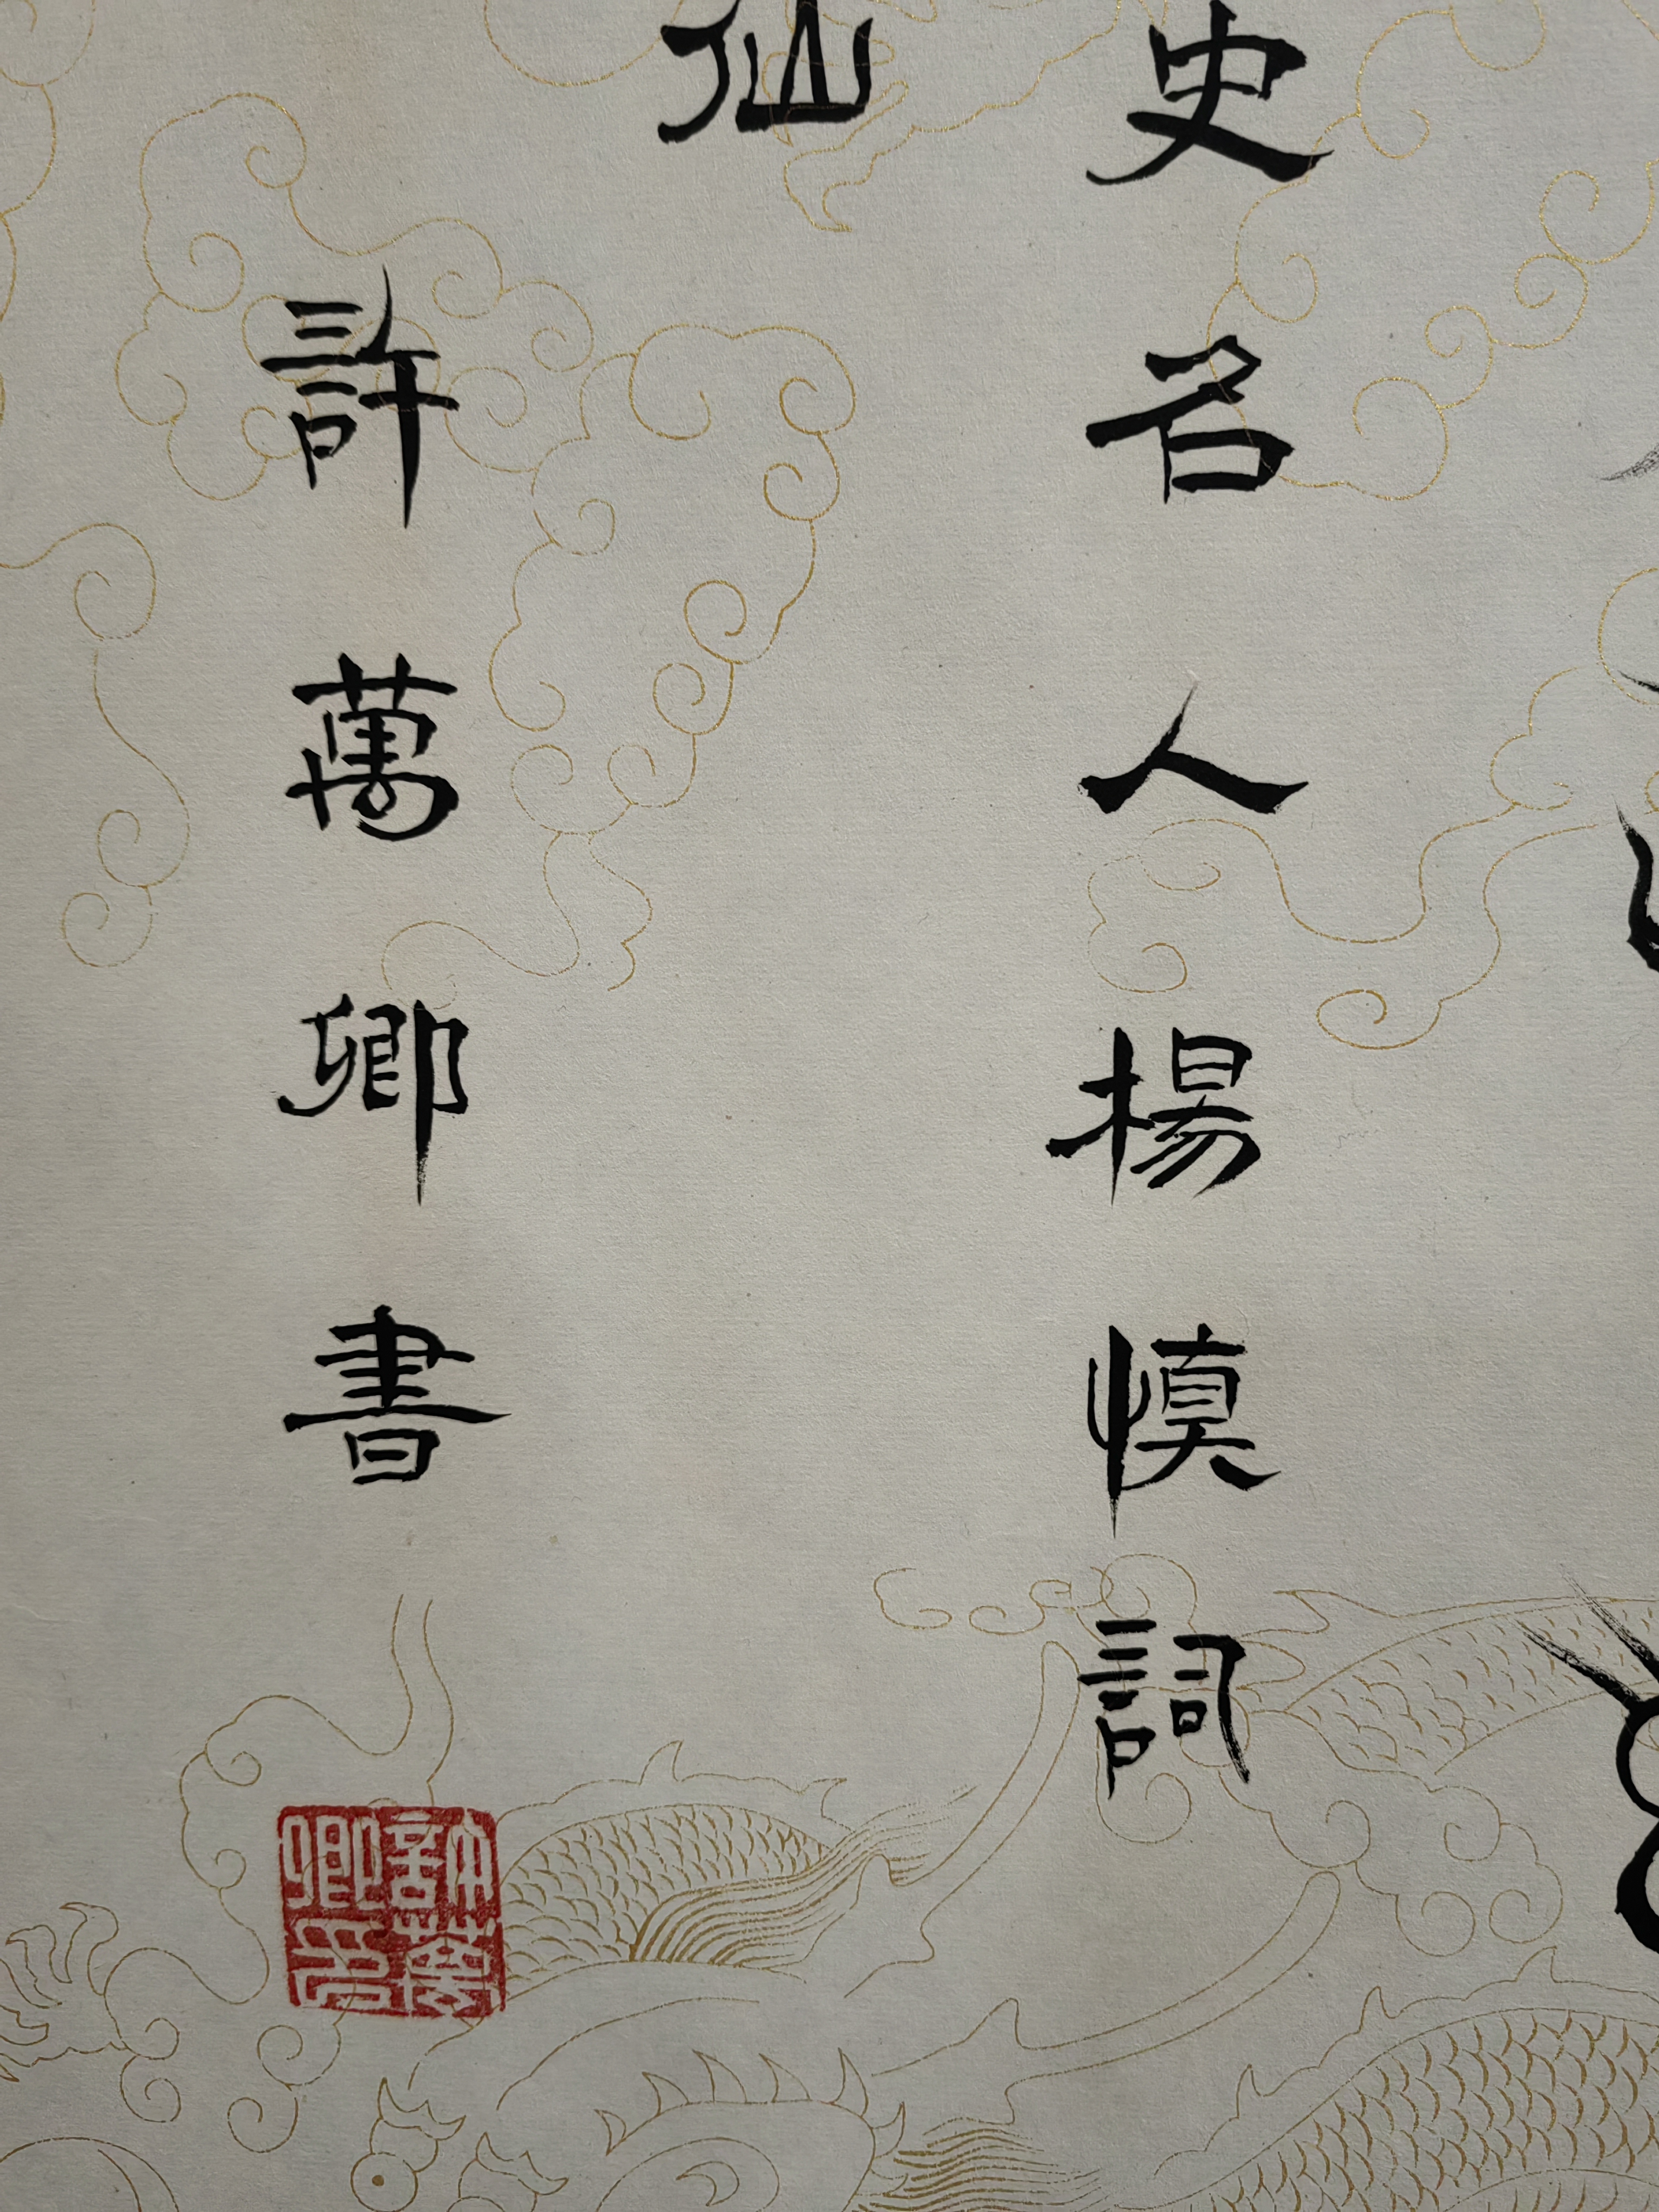 史名人楊慎詞
仙
許萬卿書
許萬卿印